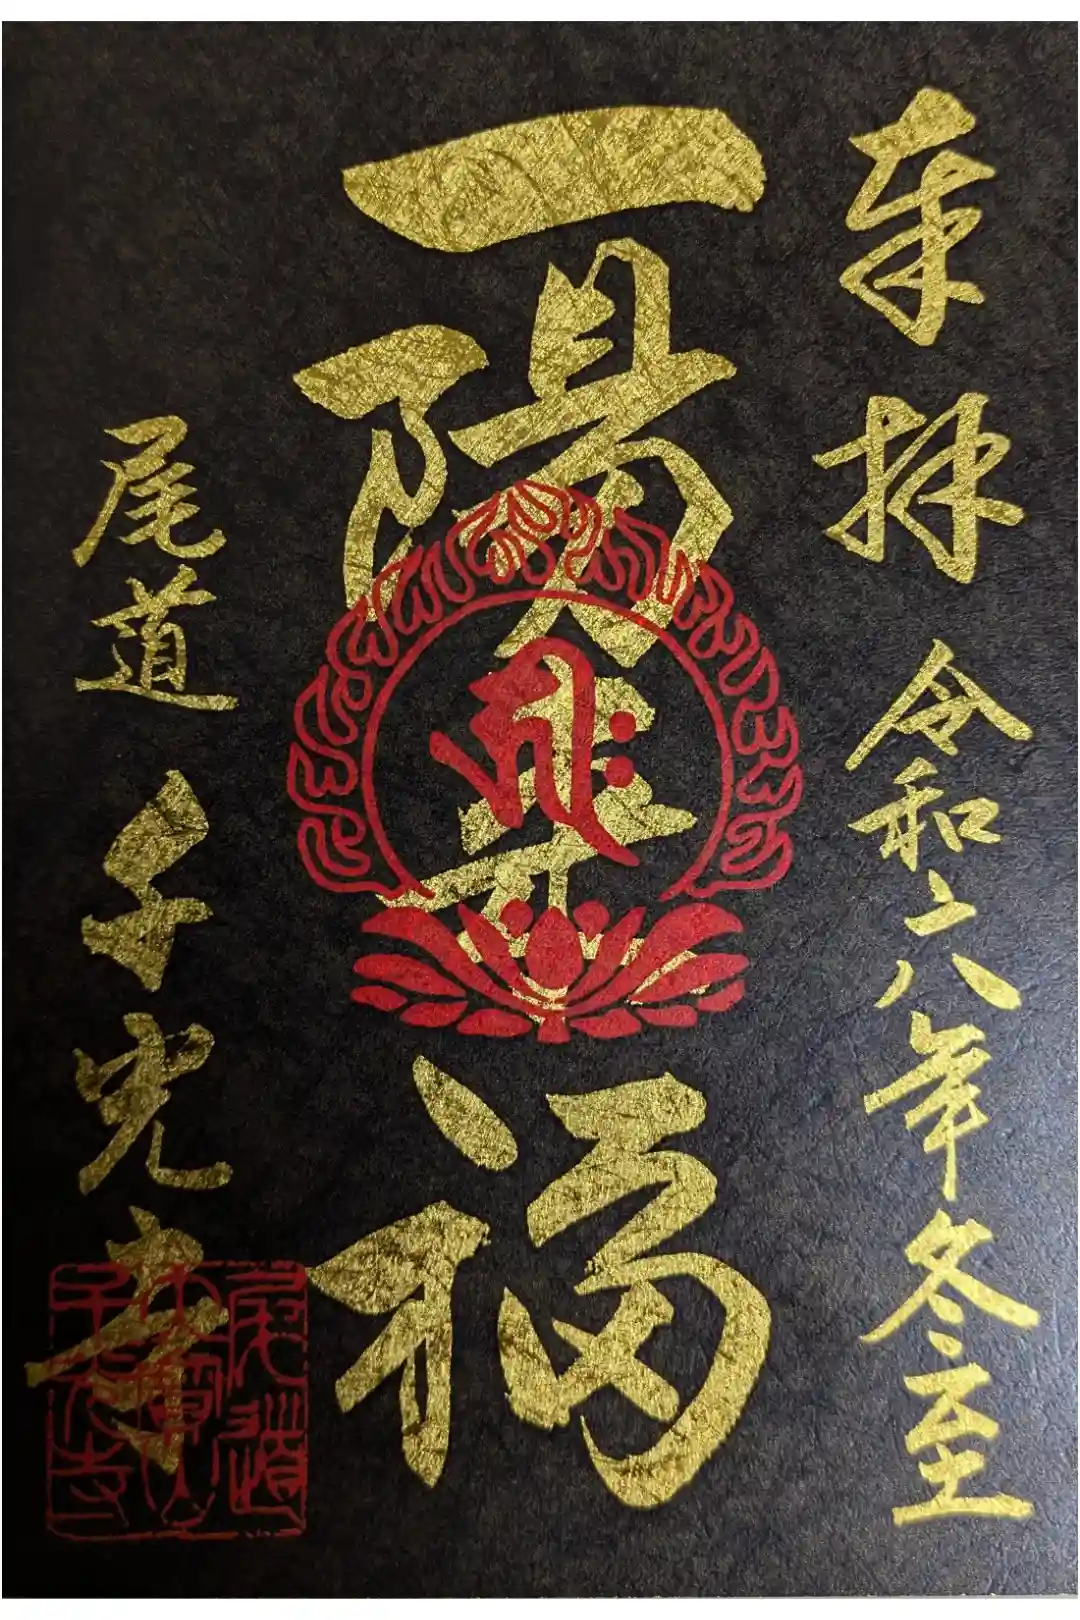 奉拝 令和六年冬至
一陽来福
尾道 千光寺
尾道
大宝山
千光寺